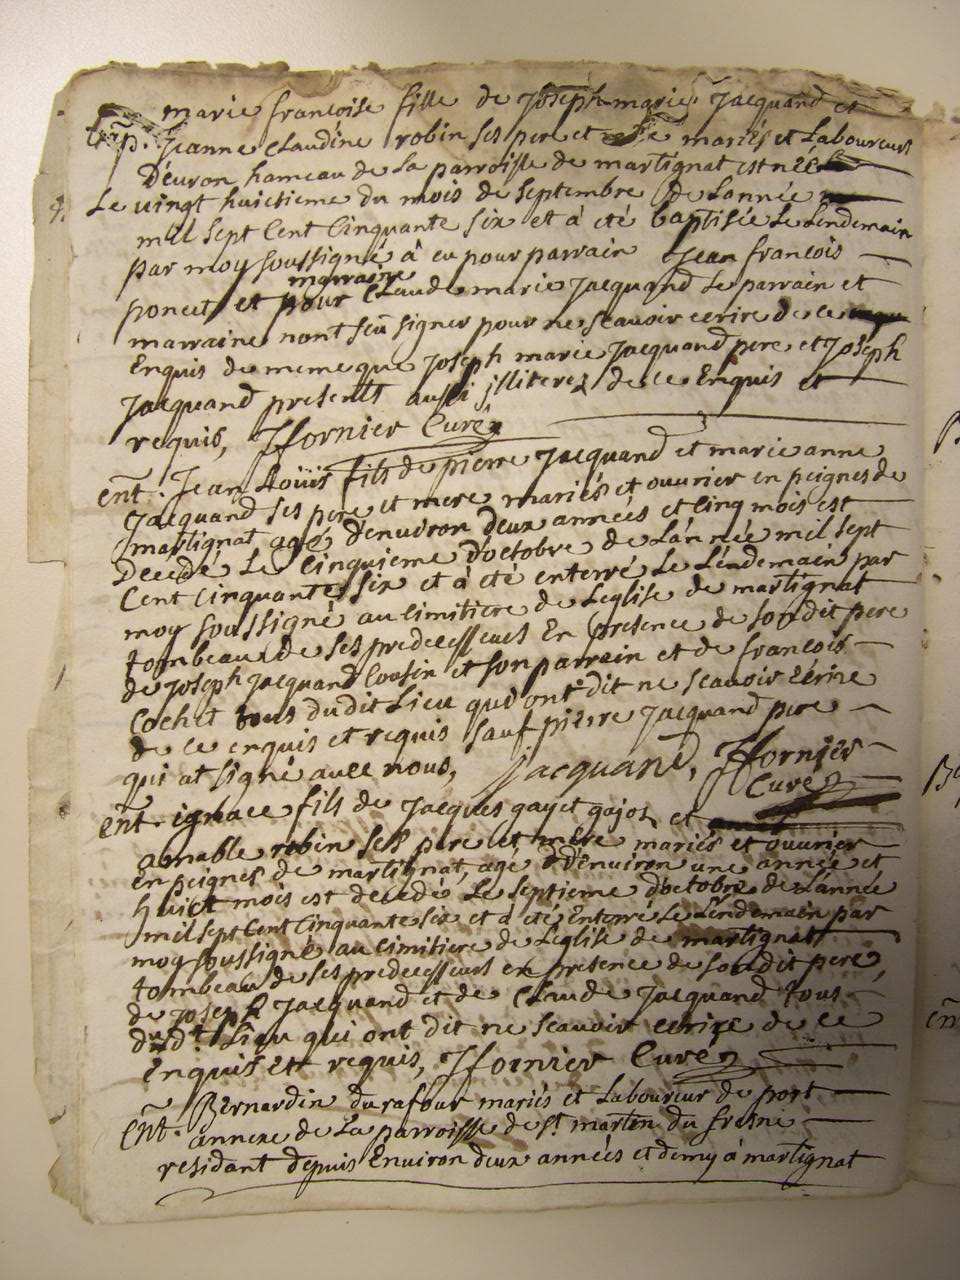 marie françoise fille de Joseph marie Jacquand et
Bap. Jeanne Claudine robin ses pere et mariés et Laboureurs
D'euron hameau de La parroisse de martignat est née
Le vingt huictieme du mois de septembre de Lannée
mil sept Cent Cinquante six et à été baptisée Le Lendemain
par moy soussigné à eu pour parrain Jean francois
marraine
poncet et pour Claude marie Jacquand Le parrain et
marraine n'ont sçu signer pour ne scavoir ecrire de ce
Enquis de meme que Joseph marie Jacquand pere et Joseph
Jacquand presents aussi jlliterez de ce Enquis et
requis, Hornier Curé
ent. Jean Loüis fils de pierre Jacquand et marie anne
Jacquand ses pere et mere mariés et ouvrier en peignes de
martignat agé d'environ deux années et cinq mois est
Decedé Le Cinquieme d'octobre de L'année mil sept
Cent Cinquante six et à été enterré Le Lendemain par
moy soussigné au Cimitiere de L'eglise de martignat
tombeau de ses predecesseurs En presence de sondit pere
de Joseph Jacquand Cousin et son parrain et de francois
Cochet tous dudit Lieu qui ont dit ne scavoir Ecrire
de ce enquis et requis sauf pierre Jacquand pere
qui at signé avec nous, Jacquand, Hornier
Curé
ent. ignace fils de Jacques gayet gajoz et
aimable robin ses pere et mere mariés et ouvrier
en peignes de martignat, agé d'environ une année et
huict mois est decedé Le septieme d'octobre de L'année
mil sept Cent Cinquante six et à été Enterré Le Lendemain par
moy soussigné au Cimitiere de L'eglise de martignat
tombeau de ses predecesseurs en presence de sondit pere,
de Joseph Jacquand et de Claude Jacquand tous
dud.t Lieu qui ont dit ne scavoir ecrire de ce
enquis et requis, Hornier Curé
Ent. Bernardin durafour mariés et Laboureur de port
annexe de La parroisse de st. martin du fresne
residant depuis Environ deux années et demy à martignat